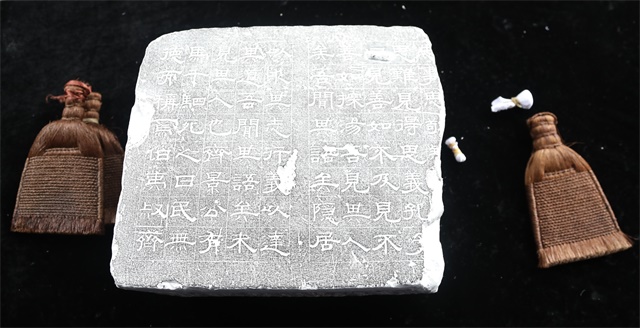 難見得思義孔
見善如不及見不
善如探湯吾見其人
矣吾聞其語矣隱居
以求其志行義以達
其道吾聞其語矣未
見其人也齊景公有
馬千駟死之日民無
德而焉伯夷叔齊